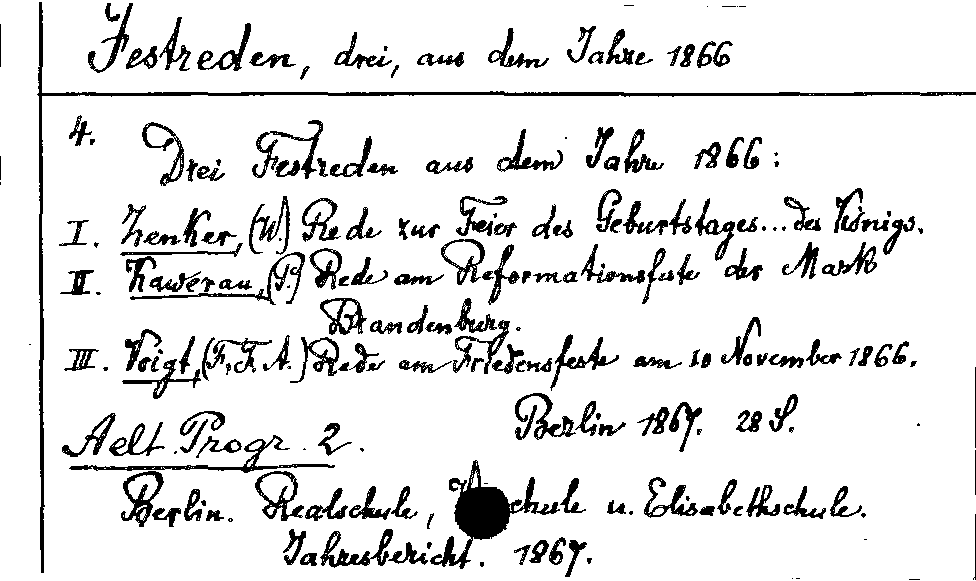 Festreden, drei, aus dem Jahre 1866
4.
Drei Festreden aus dem Jahre 1866:
I. Zenker, (W.) Rede zur Feier des Geburtstages... des Königs.
II. Kawerau, (P.) Rede am Reformationsfeste der Mark
Brandenburg.
III. Voigt, (F. F. A.) Rede am Friedensfeste am 10 November 1866.
Berlin 1867. 28 S.
Aelt. Progr. 2.
Berlin. Realschule, chule u. Elisabethschule.
Jahresbericht. 1867.